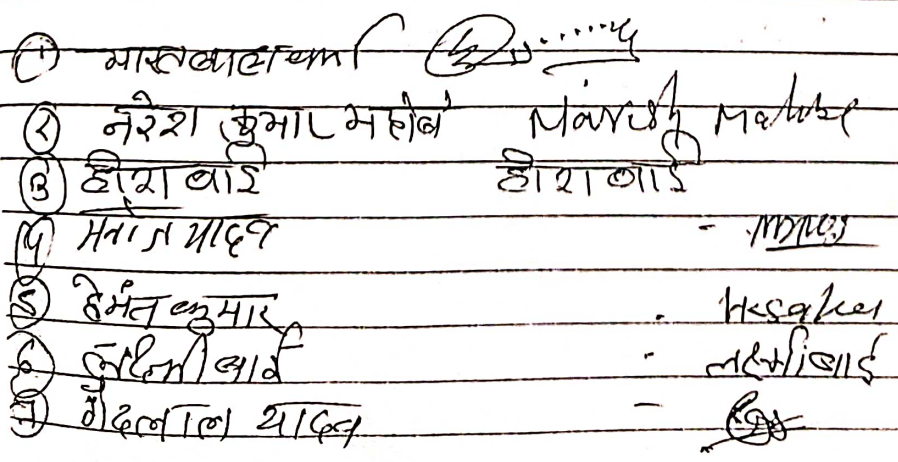 ① भारत लाल वर्मा
② नरेश कुमार महोबे Naresh Mahobe
③ हीरा बाई हीरा बाई
④ मनोज यादव -
⑤ हेमंत कुमार .
⑥ लक्ष्मी बाई - लक्ष्मी बाई
⑦ गेंदलाल यादव -